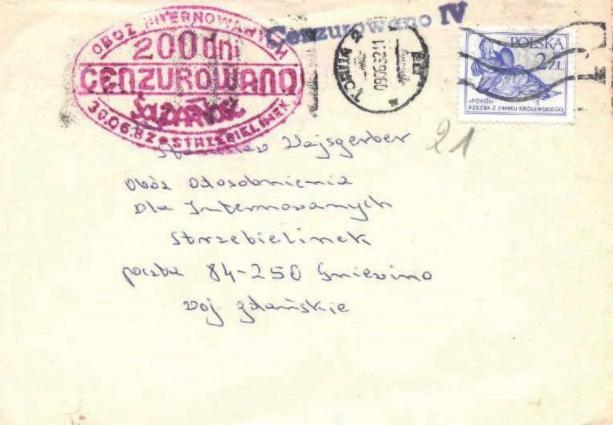 OBÓZ INTERNOWANYCH
200 dni
CENZUROWANO
SOLIDARNOŚĆ
30.06.82 * STRZEBIELINEK
Cenzurowano IV
TORUŃ 2
POLSKA
2 ZŁ
«POKÓJ»
RZEŹBA Z ZAMKU KRÓLEWSKIEGO
21
Wajsgerber
Obóz Odosobnienia
Dla Internowanych
Strzebielinek
poczta 84-250 Gniewino
woj gdańskie